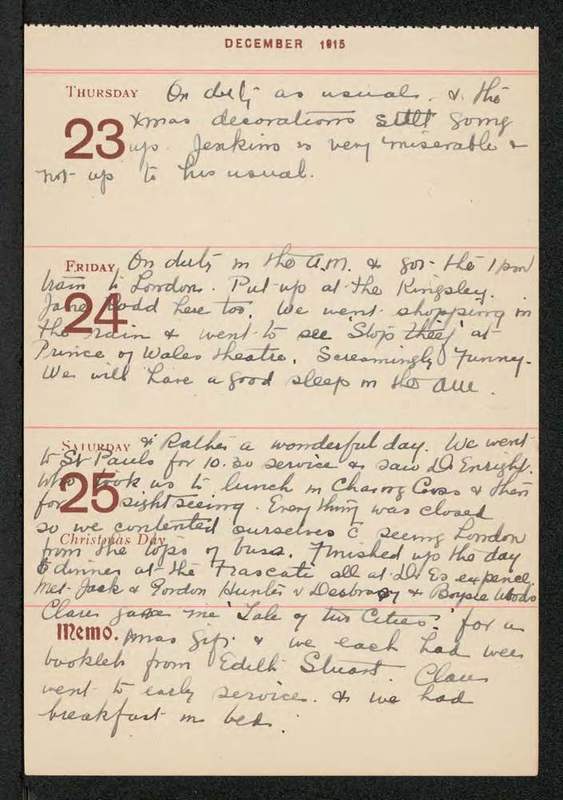 DECEMBER 1915
THURSDAY On duty as usual. & the
23 Xmas decorations still going
up. Jenkins is very miserable &
not up to his usual.
FRIDAY On duty in the a.m. & got the 1 pm
train to London. Put up at the Kingsley.
24 Todd here too. We went shopping in
the rain & went to see 'Stop thief' at
Prince of Wales theatre. Screamingly funny.
We will have a good sleep in the am.
SATURDAY & Rather a wonderful day. We went
to St Pauls for 10.30 service & saw Dr Enright.
who took us to lunch in Charing Cross & then
25 for sightseeing. Everything was closed
so we contented ourselves c seeing London
Christmas Day
from the tops of buses. Finished up the day
c dinner at the Frascati all at Dr Es expense.
Met Jack & Gordon Hunter & & Boysie Woods
Claus gave me 'Tale of two Cities' for a
Memo. Xmas gift & we each had wee
booklets from Edith Stuart. Claus
went to early service. & we had
breakfast in bed.